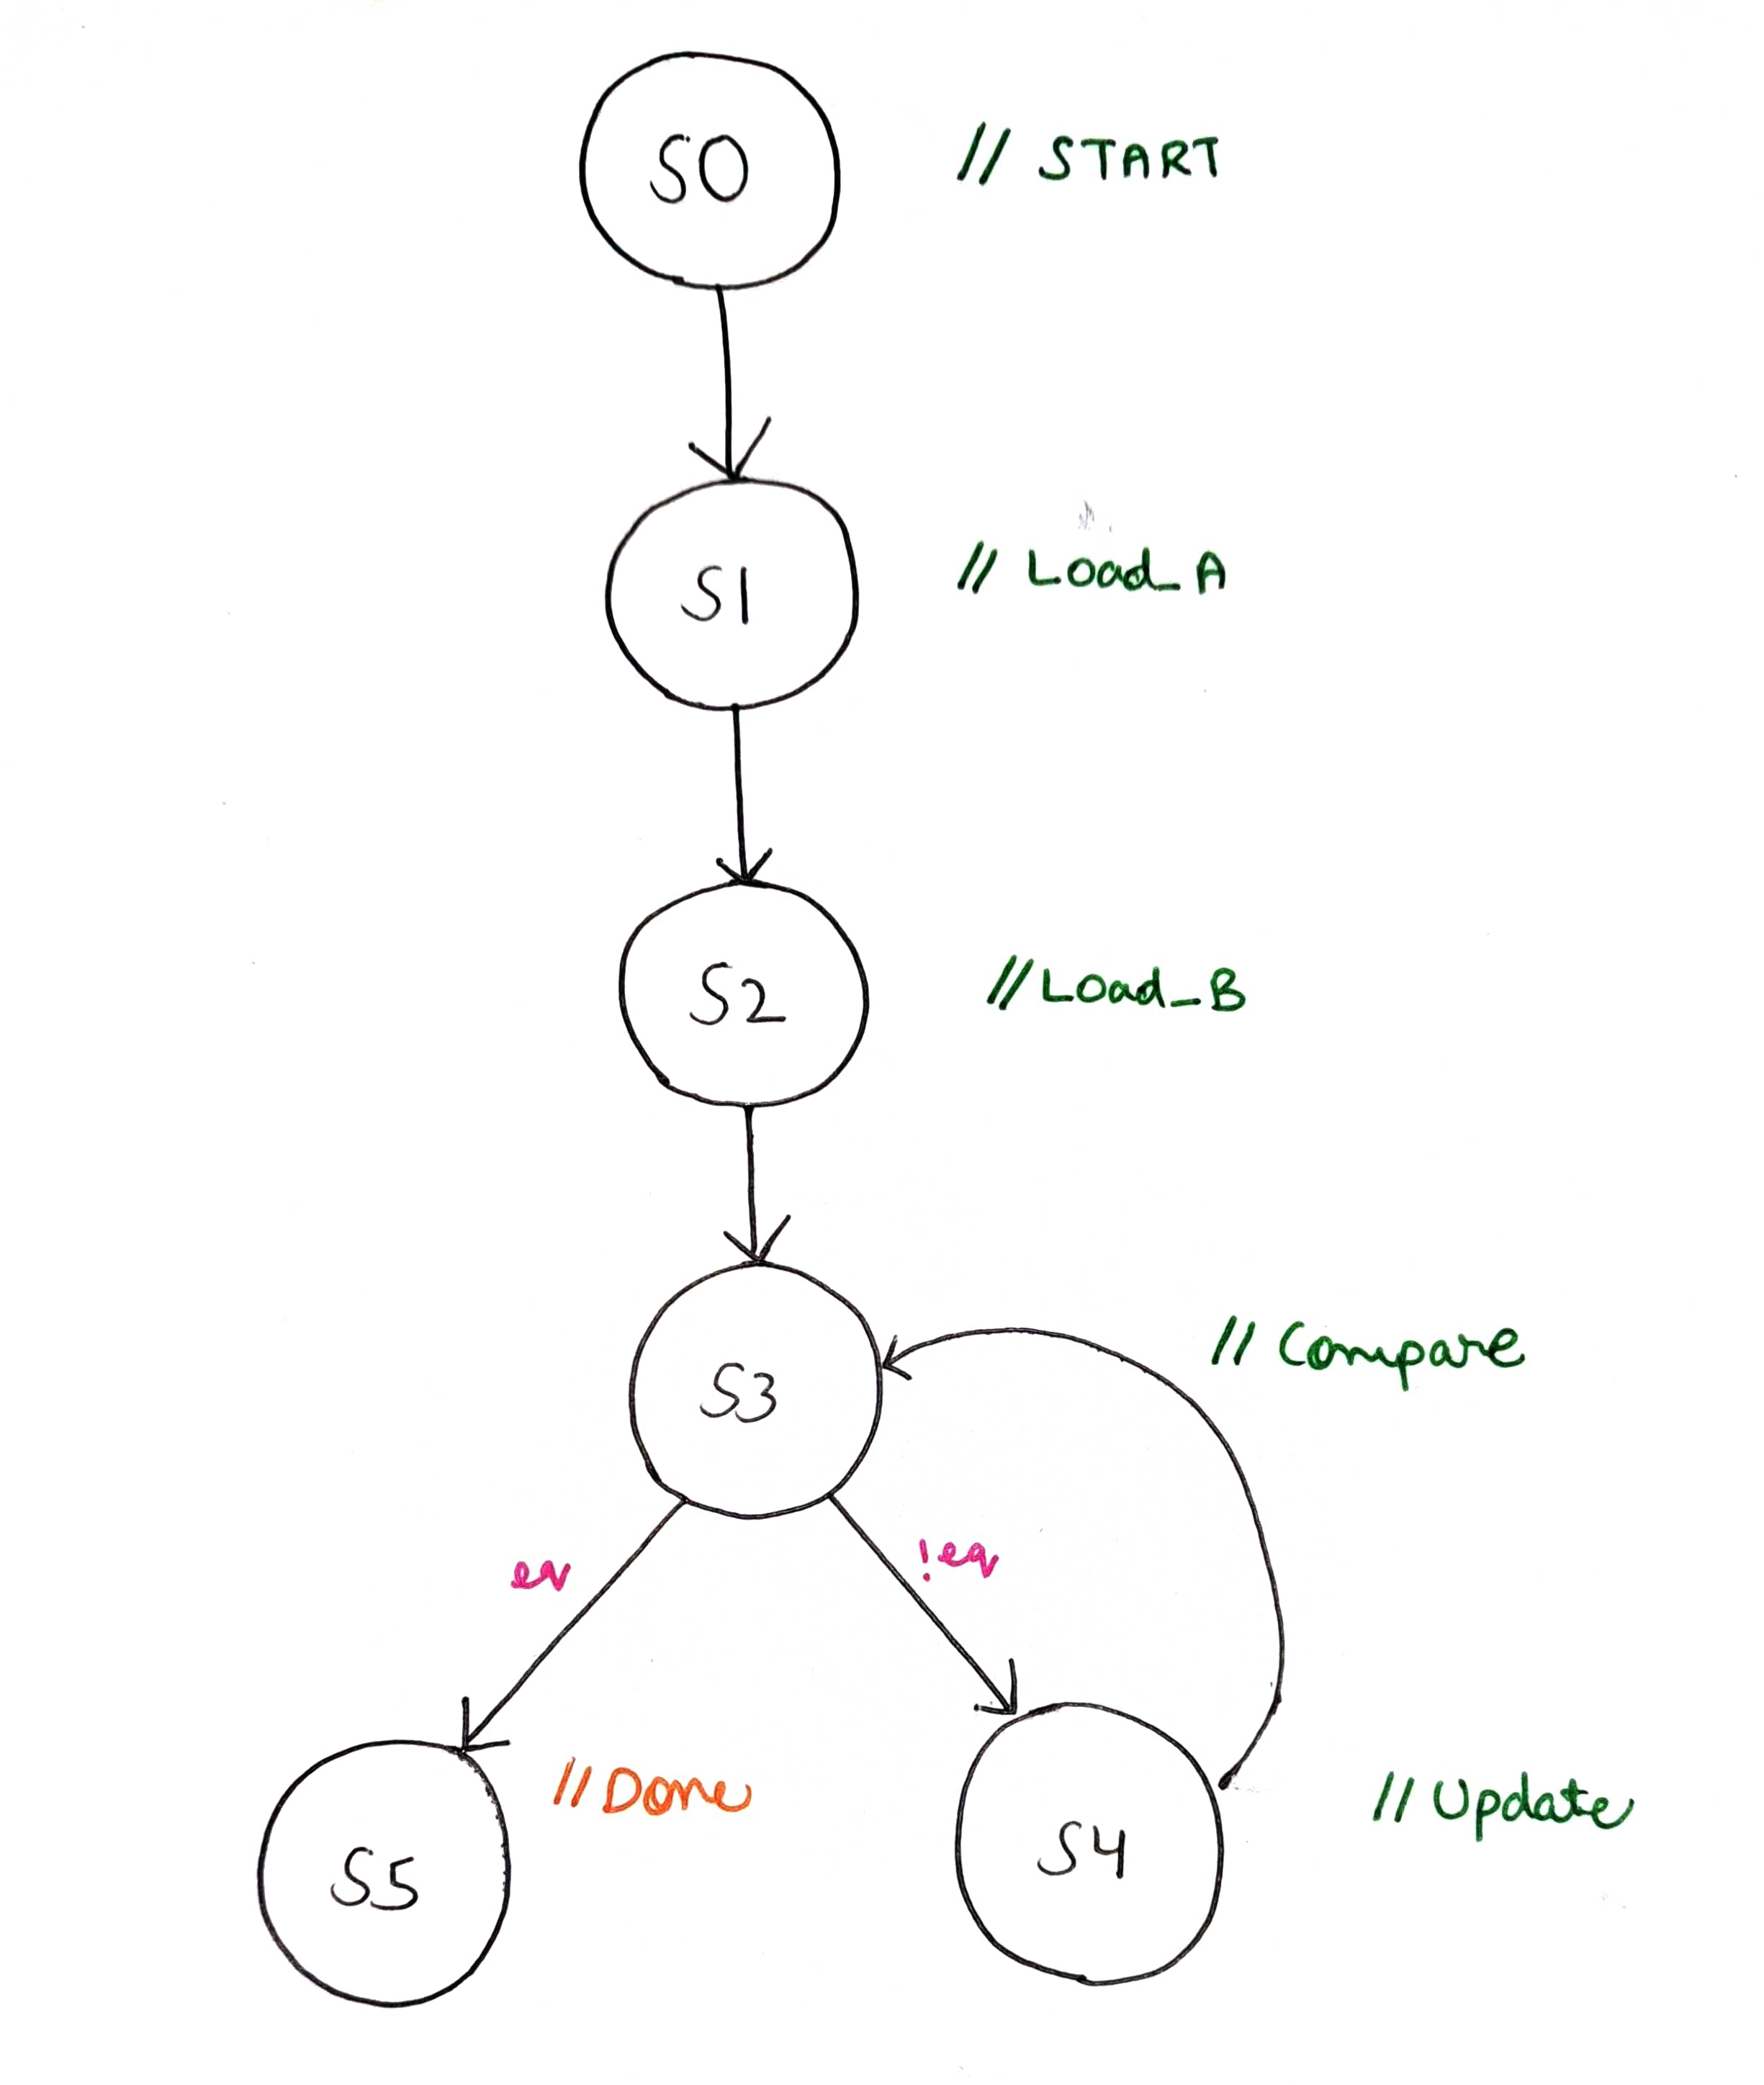 S0 // START
S1 // Load_A
S2 // Load_B
S3 // Compare
eq !eq
S5 // Done
S4 // Update